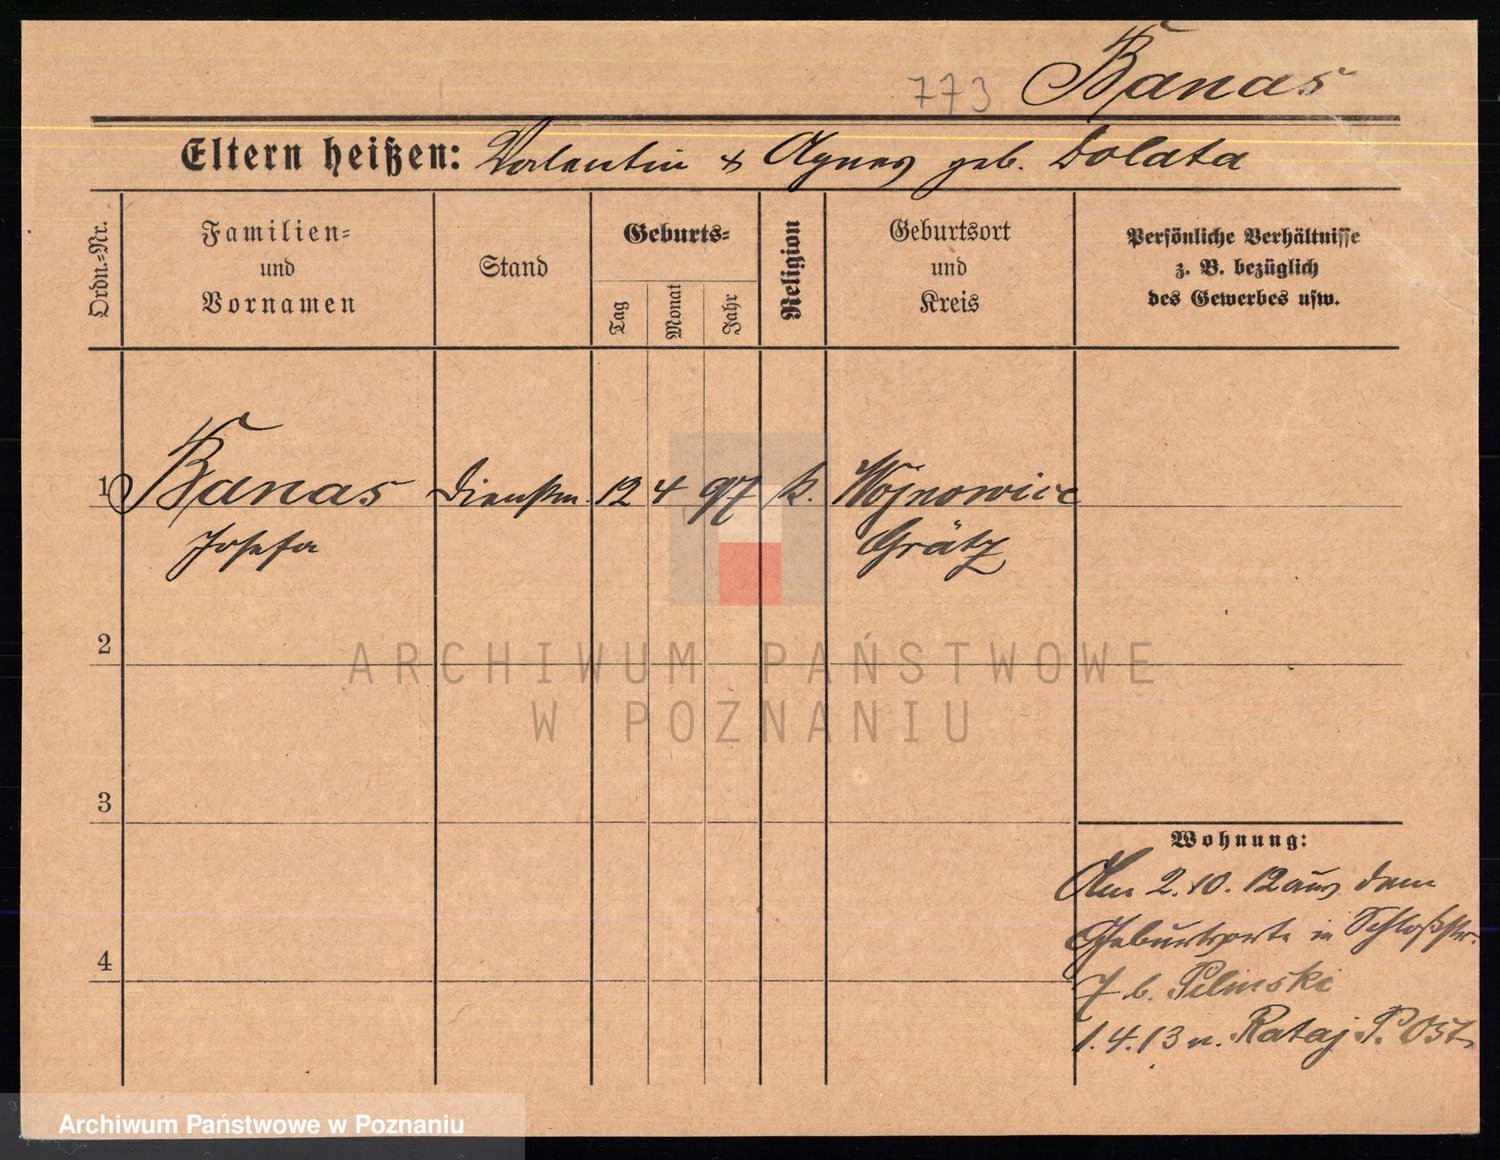 773 Banas
Eltern heißen: Valentin & Agnes geb. Dolata
Ordn.-Nr.
Familien-
und
Vornamen
Stand
Geburts-
Tag
Monat
Jahr
Religion
Geburtsort
und
Kreis
Persönliche Verhältnisse
z. B. bezüglich
des Gewerbes usw.
1 Banas Dienstm. 12 4 97 k. Wojnowice
Josefa Grätz
2
ARCHIWUM PAŃSTWOWE
W POZNANIU
3
Wohnung:
Am 2.10.12 aus dem
Geburtsorte in Schloßstr.
4
7 b. Pilinski
1.4.13 n. Rataj P. Ost
Archiwum Państwowe w Poznaniu